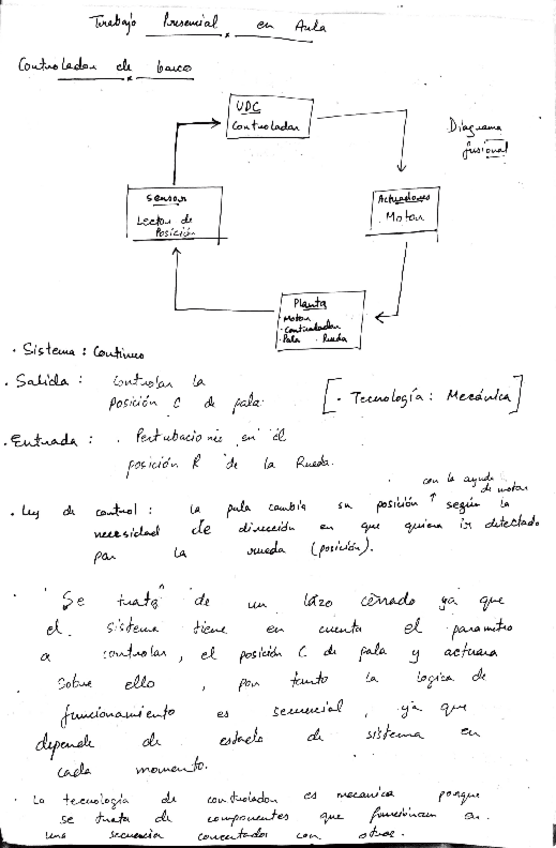 Trabajo Presencial en Aula
Controlador de barco
UDC
Controlador
Diagrama
fusional
Sensor
Lector de
Posición
Actuadores
. Motor
Planta
. Motor
. Controlador
. Pala . Rueda
. Sistema : Continuo
. Salida : Controlar la
posición C de pala.
[. Tecnología : Mecánica]
. Entrada : . Pertubaciones en el
posición R de la Rueda.
con la ayuda
de motor
. Ley de control : la pala cambia su posición ↑ según la
necesidad de dirección en que quiera ir detectado
por la rueda (posición).
Se trata de un lazo cerrado ya que
el sistema tiene en cuenta el parametro
a controlar, el posición C de pala y actuara
sobre ello, por tanto la logica de
funcionamiento es secuencial, ya que
depende de estado de sistema en
cada momento.
. La tecnología de controlador es mecanica porque
se trata de componentes que funcionan en
una secuencia concentados con otros.